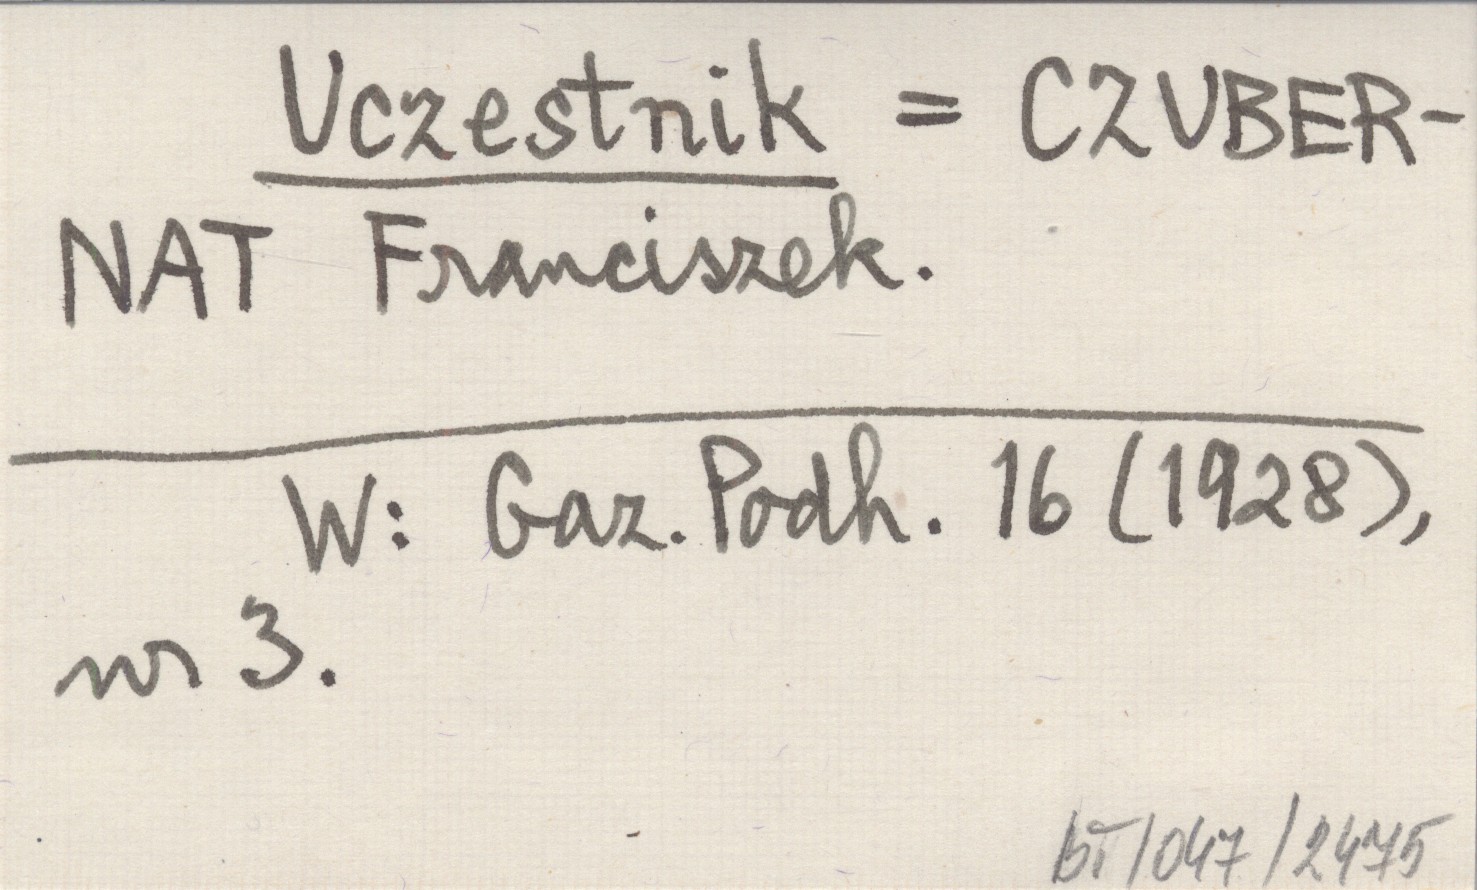 Uczestnik = CZUBER-
NAT Franciszek.
W: Gaz. Podh. 16 (1928),
nr 3.
bī/047/2475